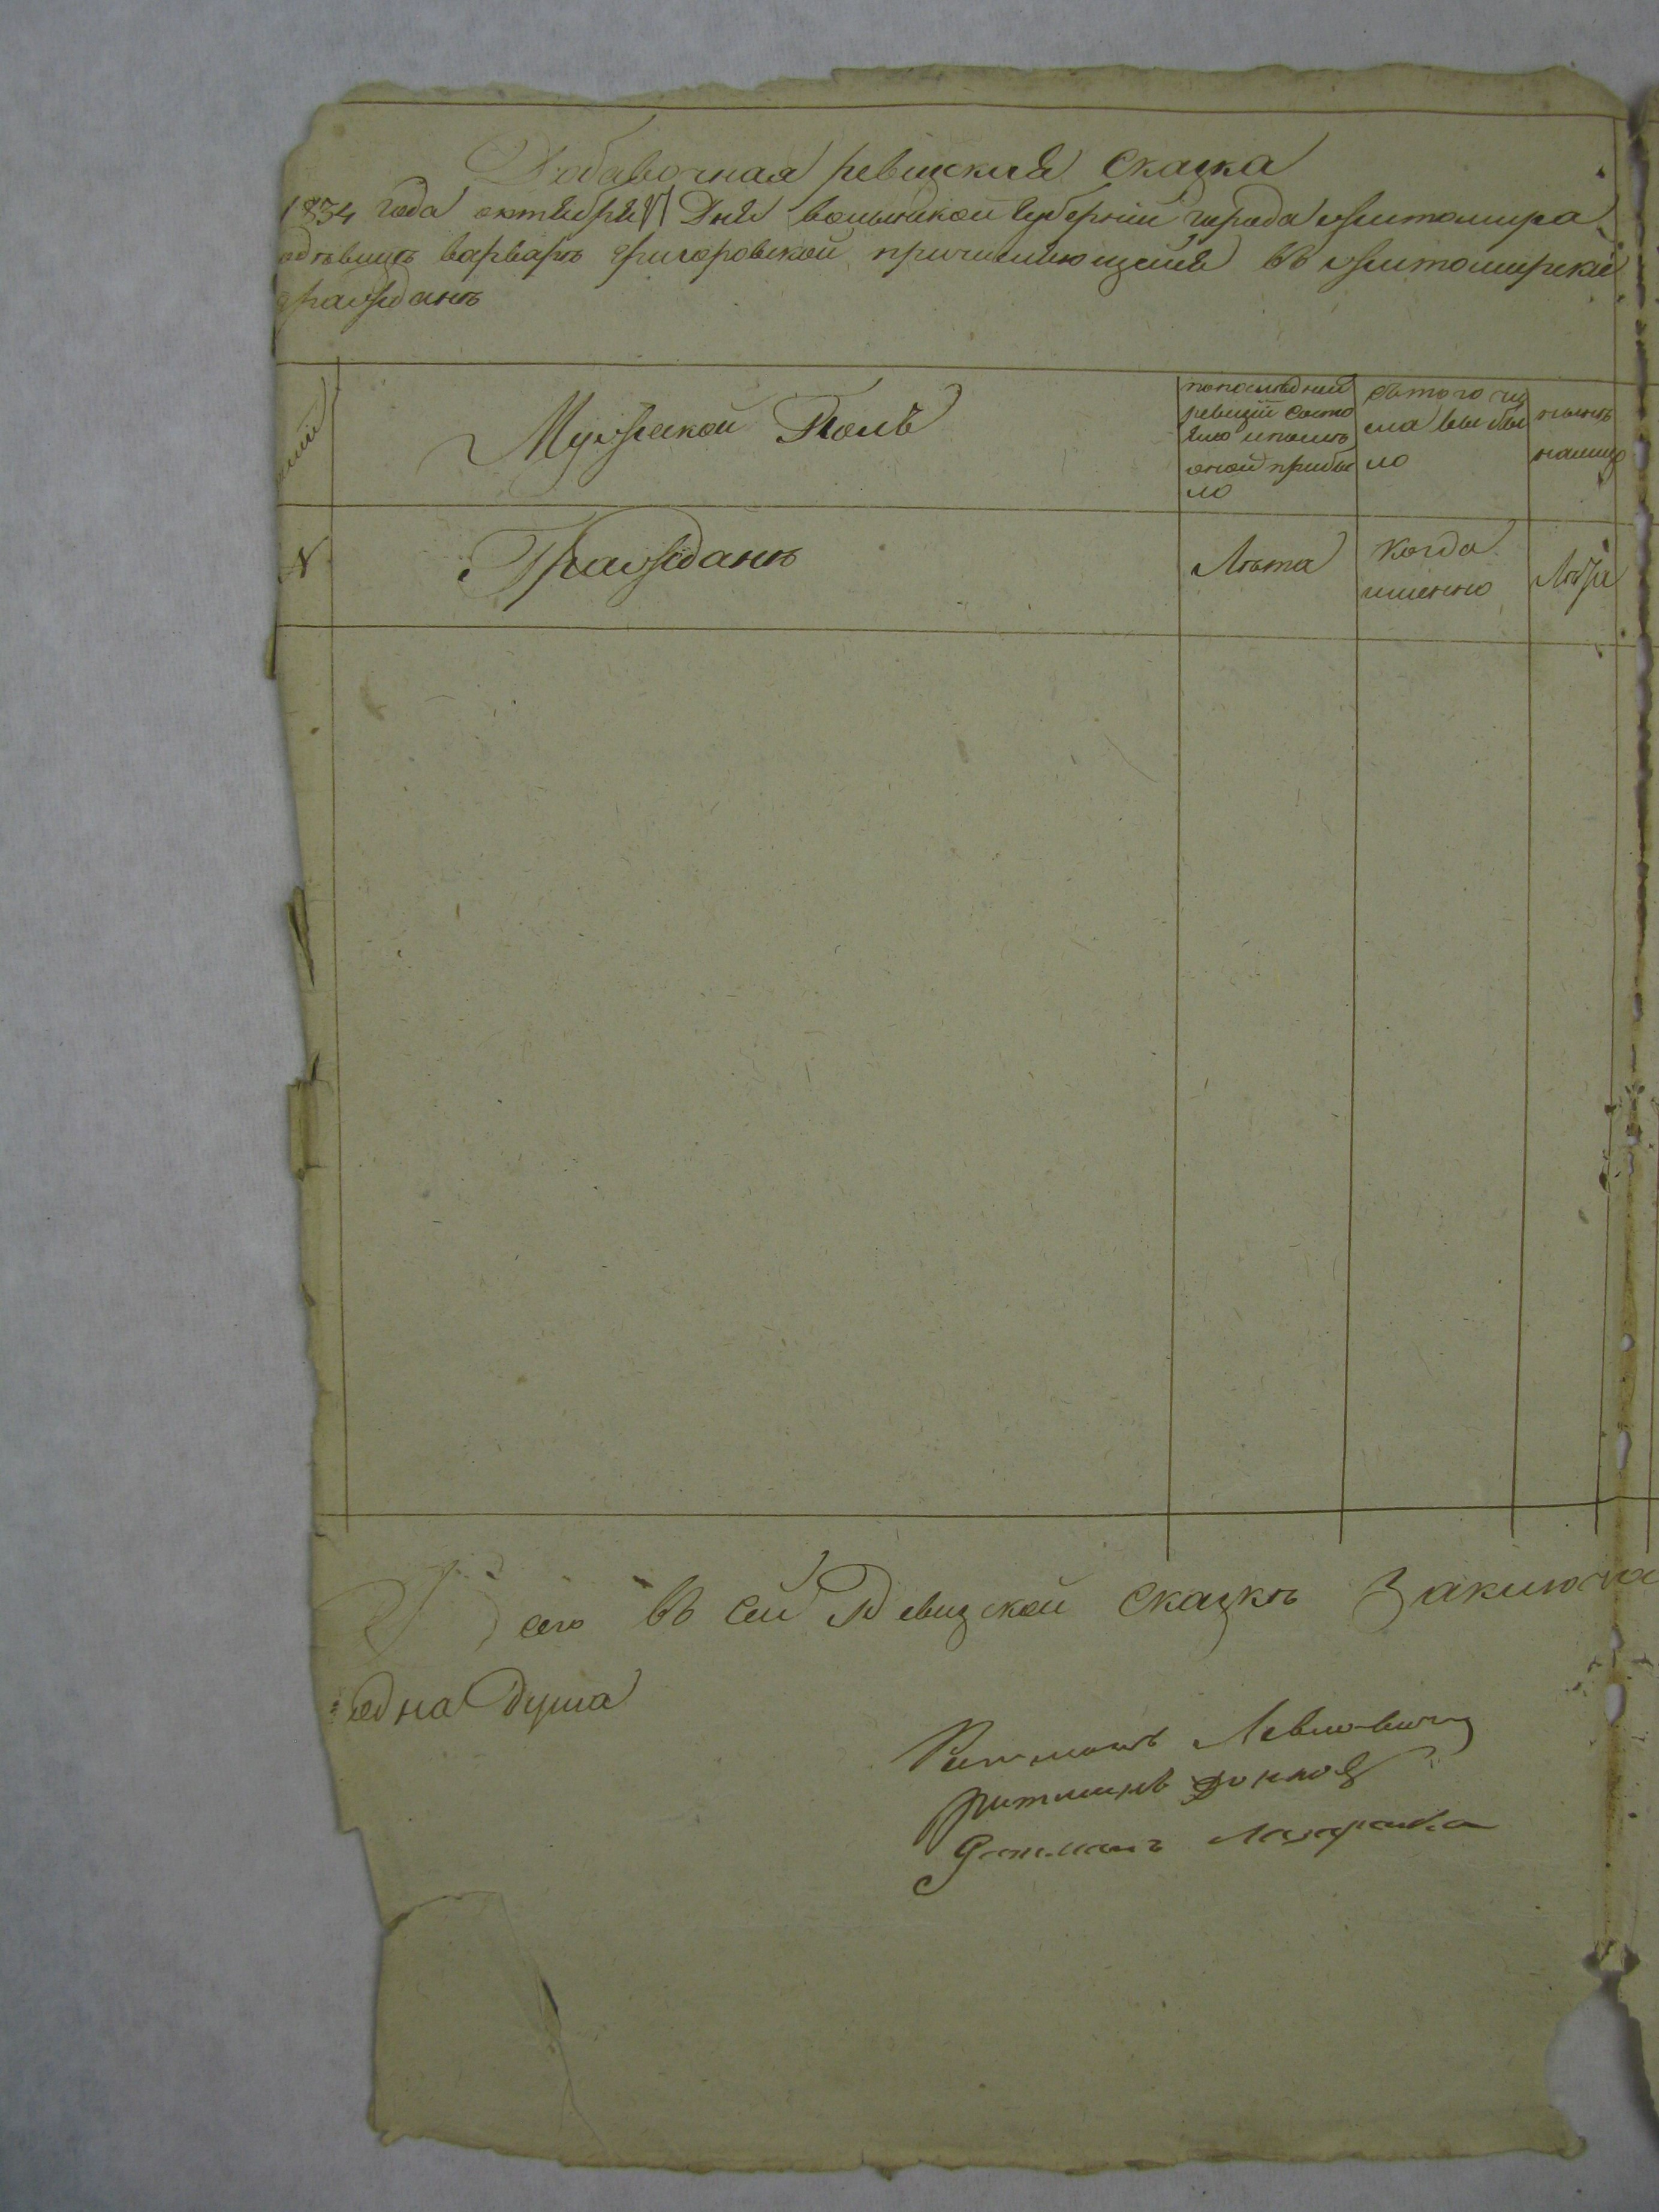 Добавочная ревиская Сказка
1834 года октября VI Дня волынской Губернии города Житомира
одѣвицѣ варварѣ Григоровской причисляющейся въ Житомирские
граждане
Мужеской Полъ
попоследней
ревизіи состо
яло ипослѣ
оной прибы
ло
сьтого чи
сла выбы
ло
нынѣ
налицо
N
Гражданѣ
Лѣта
Когда
именно
Лѣта
Всего въ сей Ревизской Сказкѣ Заключа
одна Душа
Ратманъ Левковичъ
Ратманъ
Ратманъ